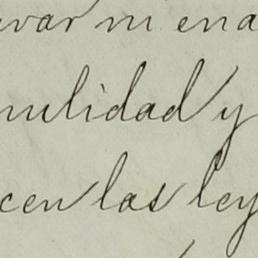 var ni ena
nulidad y
cen las ley